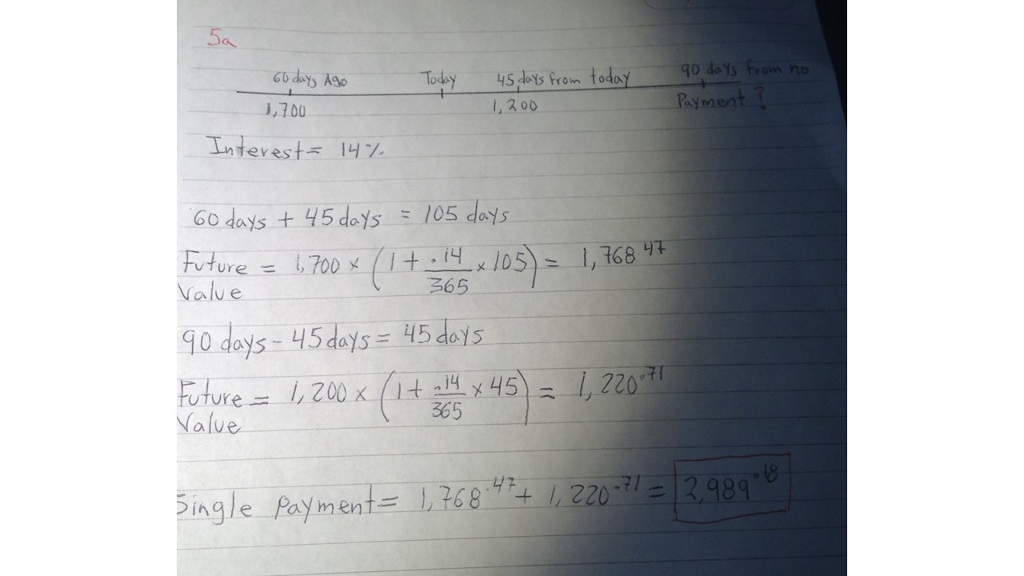 5a
60 days Ago Today 45 days from today 90 days from no
1,700 1,200 Payment ?
Interest = 14%
60 days + 45 days = 105 days
Future = 1,700 × (1 + .14/365 × 105) = 1,768 47
Value
90 days - 45 days = 45 days
Future = 1,200 × (1 + .14/365 × 45) = 1,220.71
Value
Single Payment = 1,768.47 + 1,220.71 = 2,989.18